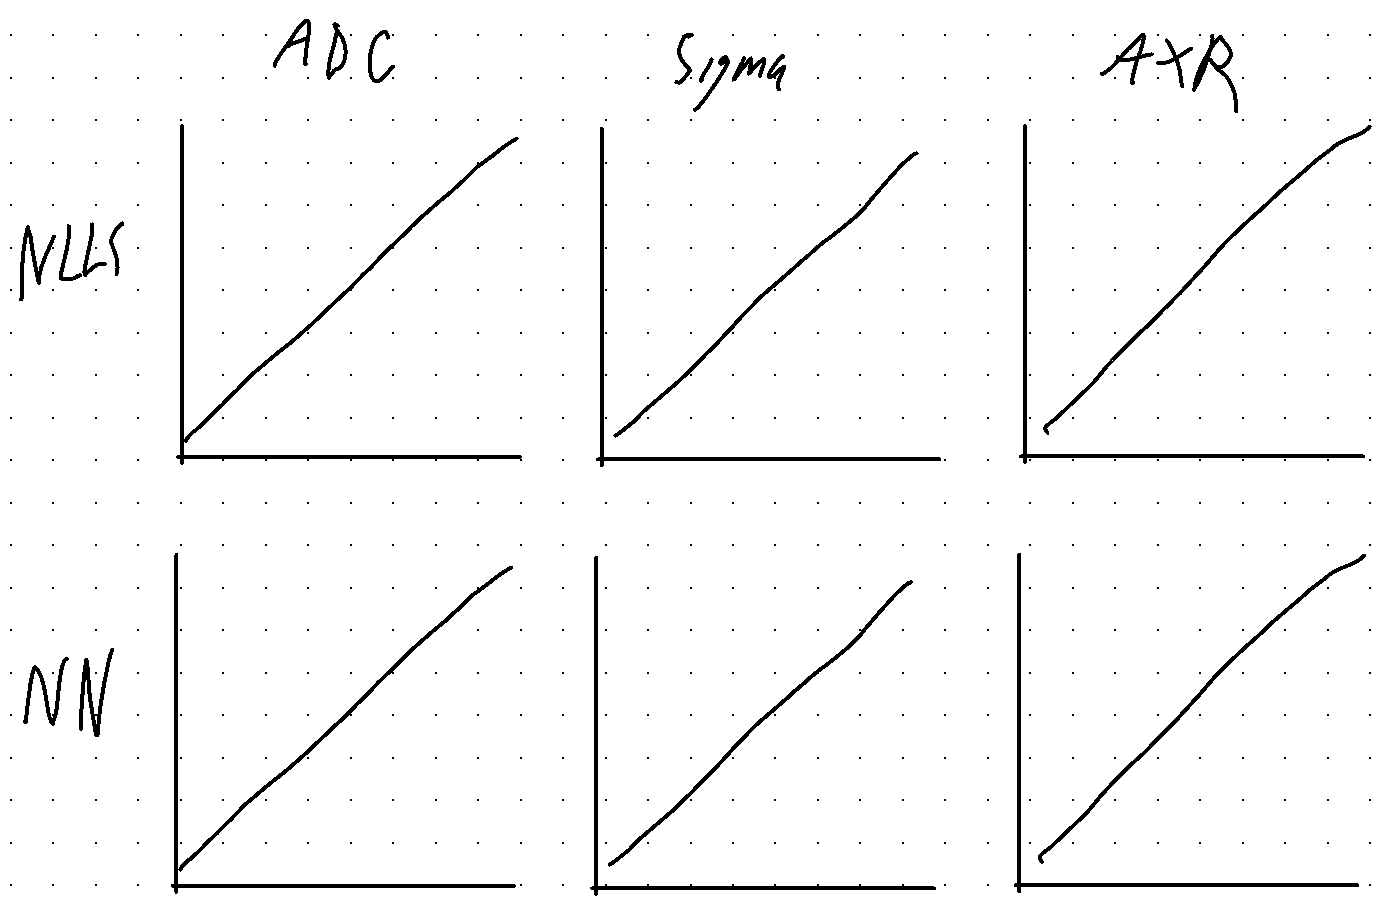 ADC Sigma AXR
NLLS
NN